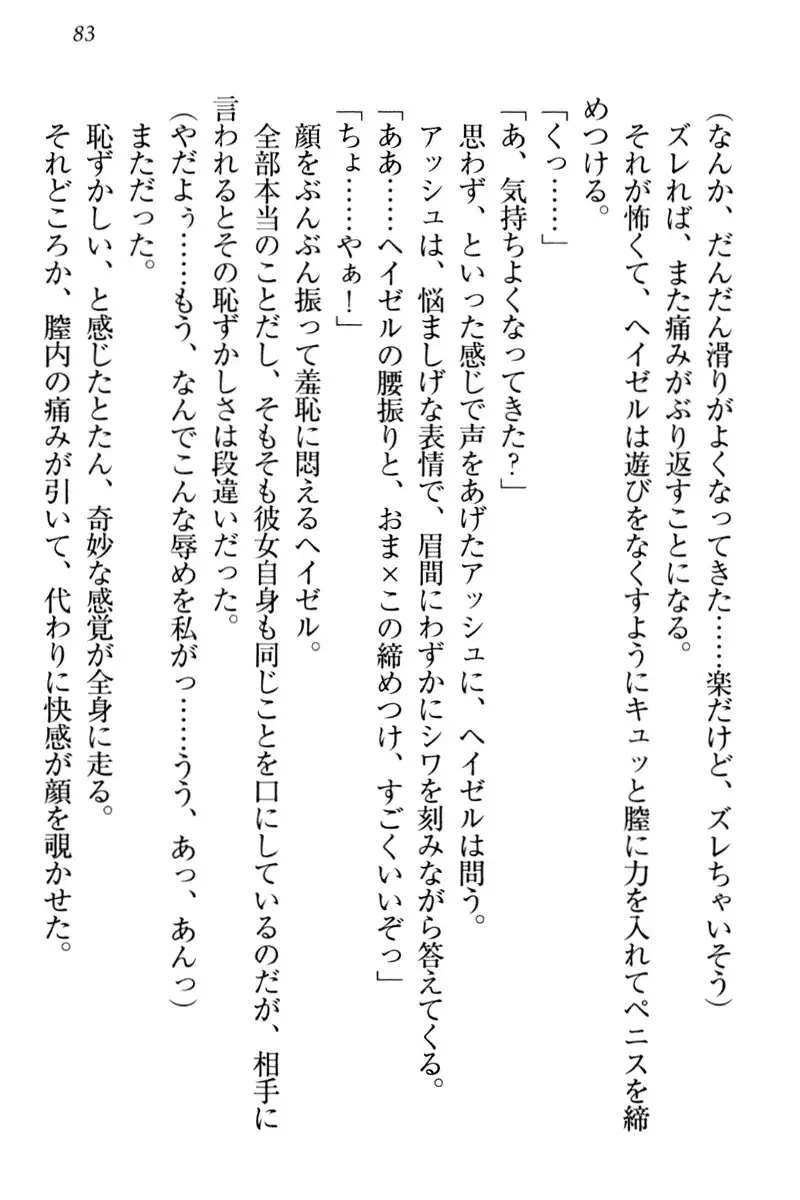 83
(なんか、だんだん滑りがよくなってきた……楽だけど、ズレちゃいそう)
ズレれば、また痛みがぶり返すことになる。
それが怖くて、ヘイゼルは遊びをなくすようにキュッと膣に力を入れてペニスを締
めつける。
「くっ……」
「あ、気持ちよくなってきた？」
思わず、といった感じで声をあげたアッシュに、ヘイゼルは問う。
アッシュは、悩ましげな表情で、眉間にわずかにシワを刻みながら答えてくる。
「ああ……ヘイゼルの腰振りと、おま×この締めつけ、すごくいいぞっ」
「ちょ……やぁ！」
顔をぶんぶん振って羞恥に悶えるヘイゼル。
全部本当のことだし、そもそも彼女自身も同じことを口にしているのだが、相手に
言われるとその恥ずかしさは段違いだった。
(やだよぅ……もう、なんでこんな辱めを私がっ……うう、あっ、あんっ)
まただった。
恥ずかしい、と感じたとたん、奇妙な感覚が全身に走る。
それどころか、膣内の痛みが引いて、代わりに快感が顔を覗かせた。